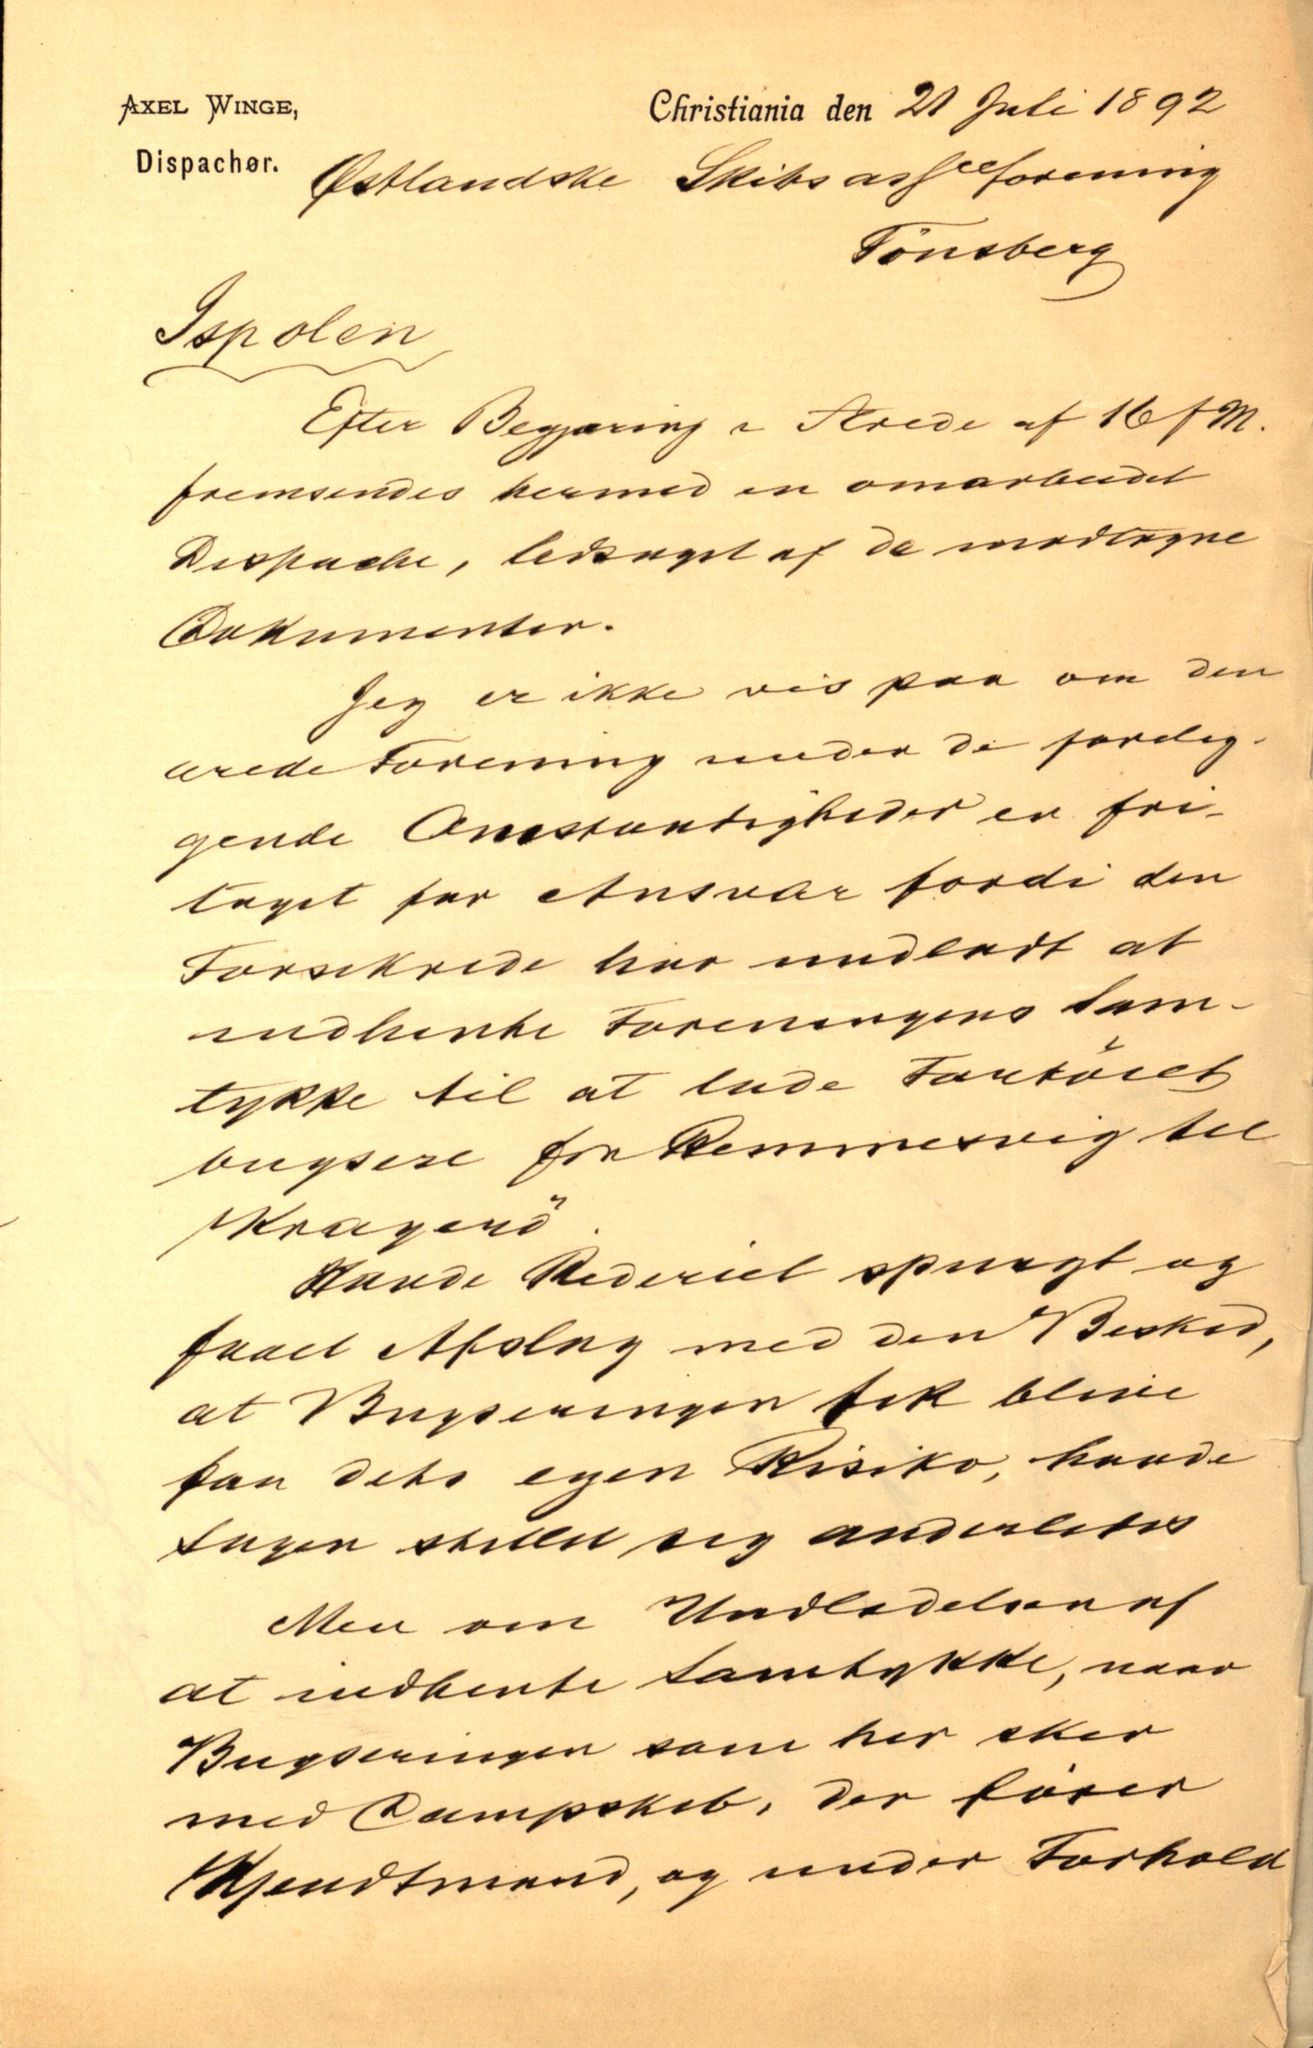 AXEL WINGE,
Dispachør.
Christiania den 21 Juli 1892
Østlandske Skibsassceforening
Tönsberg
Ispolen
Efter Begjæring i Ærede af 16 f M.
fremsendes hermed en omarbeidet
Dispache, ledsaget af de modtagne
Dokumenter.
Jeg er ikke vis paa om den
ærede Forening under de forelig-
gende Omstændigheder er fri-
taget for Ansvar fordi den
Forsikrede har undladt at
indhente Foreningens Sam-
tykke til at lade Fartöiet
bugsere fra Remmesvig til
Kragerö.
Havde Rederiet spurgt og
faaet Afslag med den Besked,
at Bugseringen fik blive
paa dets egen Risiko, havde
Sagen stillet sig anderledes
Men om Undladelsen af
at indhente Samtykke, naar
Bugseringen som her sker
med Dampskib, der förer
Kjendtmand, og under Forhold